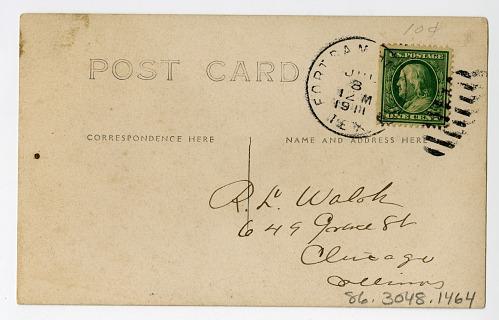 10¢
POST CARD
FORT SAM
JUL
8
12 M
1911
TEX
U.S. POSTAGE
ONE CENT
CORRESPONDENCE HERE
NAME AND ADDRESS HERE
R. L. Walsh
649 Grace St
Chicago
Illinois
86.3048.1464